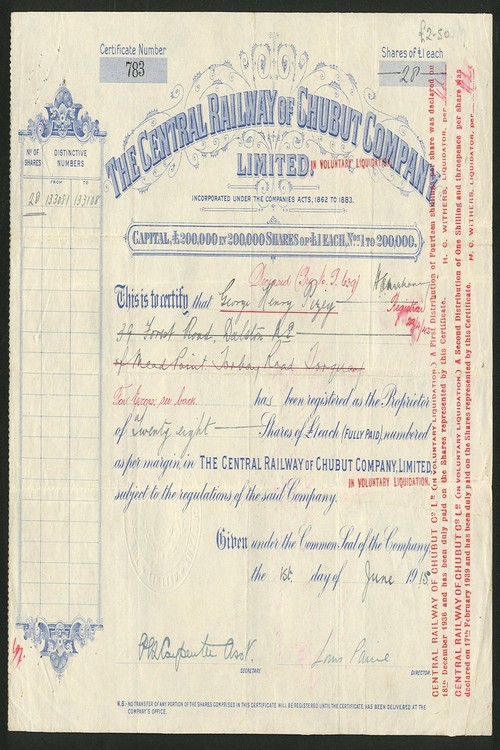 £2-50
Certificate Number
783
Shares of £1 each
28
THE CENTRAL RAILWAY OF CHUBUT COMPANY
LIMITED,
IN VOLUNTARY LIQUIDATION
INCORPORATED UNDER THE COMPANIES ACTS, 1862 TO 1883.
CAPITAL, £200,000 IN 200,000 SHARES OF £1 EACH, Nos 1 TO 200,000.
No OF SHARES
DISTINCTIVE NUMBERS
FROM TO
28 133081 133108
Deceased
Registrar
This is to certify that George Henry
39 Forest Road, Dalston
of Mead Point Torbay Road Torquay
has been registered as the Proprietor
of Twenty eight Shares of £1 each (FULLY PAID), numbered
as per margin, in THE CENTRAL RAILWAY OF CHUBUT COMPANY, LIMITED,
IN VOLUNTARY LIQUIDATION.
subject to the regulations of the said Company.
Given under the Common Seal of the Company
the 1st day of June 1915
Carpenter Asst.
SECRETARY.
Louis
DIRECTOR.
N.B:- NO TRANSFER OF ANY PORTION OF THE SHARES COMPRISED IN THIS CERTIFICATE WILL BE REGISTERED UNTIL THE CERTIFICATE HAS BEEN DELIVERED AT THE
COMPANY'S OFFICE.
CENTRAL RAILWAY OF CHUBUT Co. Ld. (IN VOLUNTARY LIQUIDATION.) A First Distribution of Fourteen shillings per share was declared on
18th December 1936 and has been duly paid on the Shares represented by this Certificate. H. C. WITHERS, LIQUIDATOR. per
CENTRAL RAILWAY OF CHUBUT Co. Ld. (IN VOLUNTARY LIQUIDATION.) A Second Distribution of One Shilling and threepence per share was
declared on 17th February 1939 and has been duly paid on the Shares represented by this Certificate. H. C. WITHERS, LIQUIDATOR, per